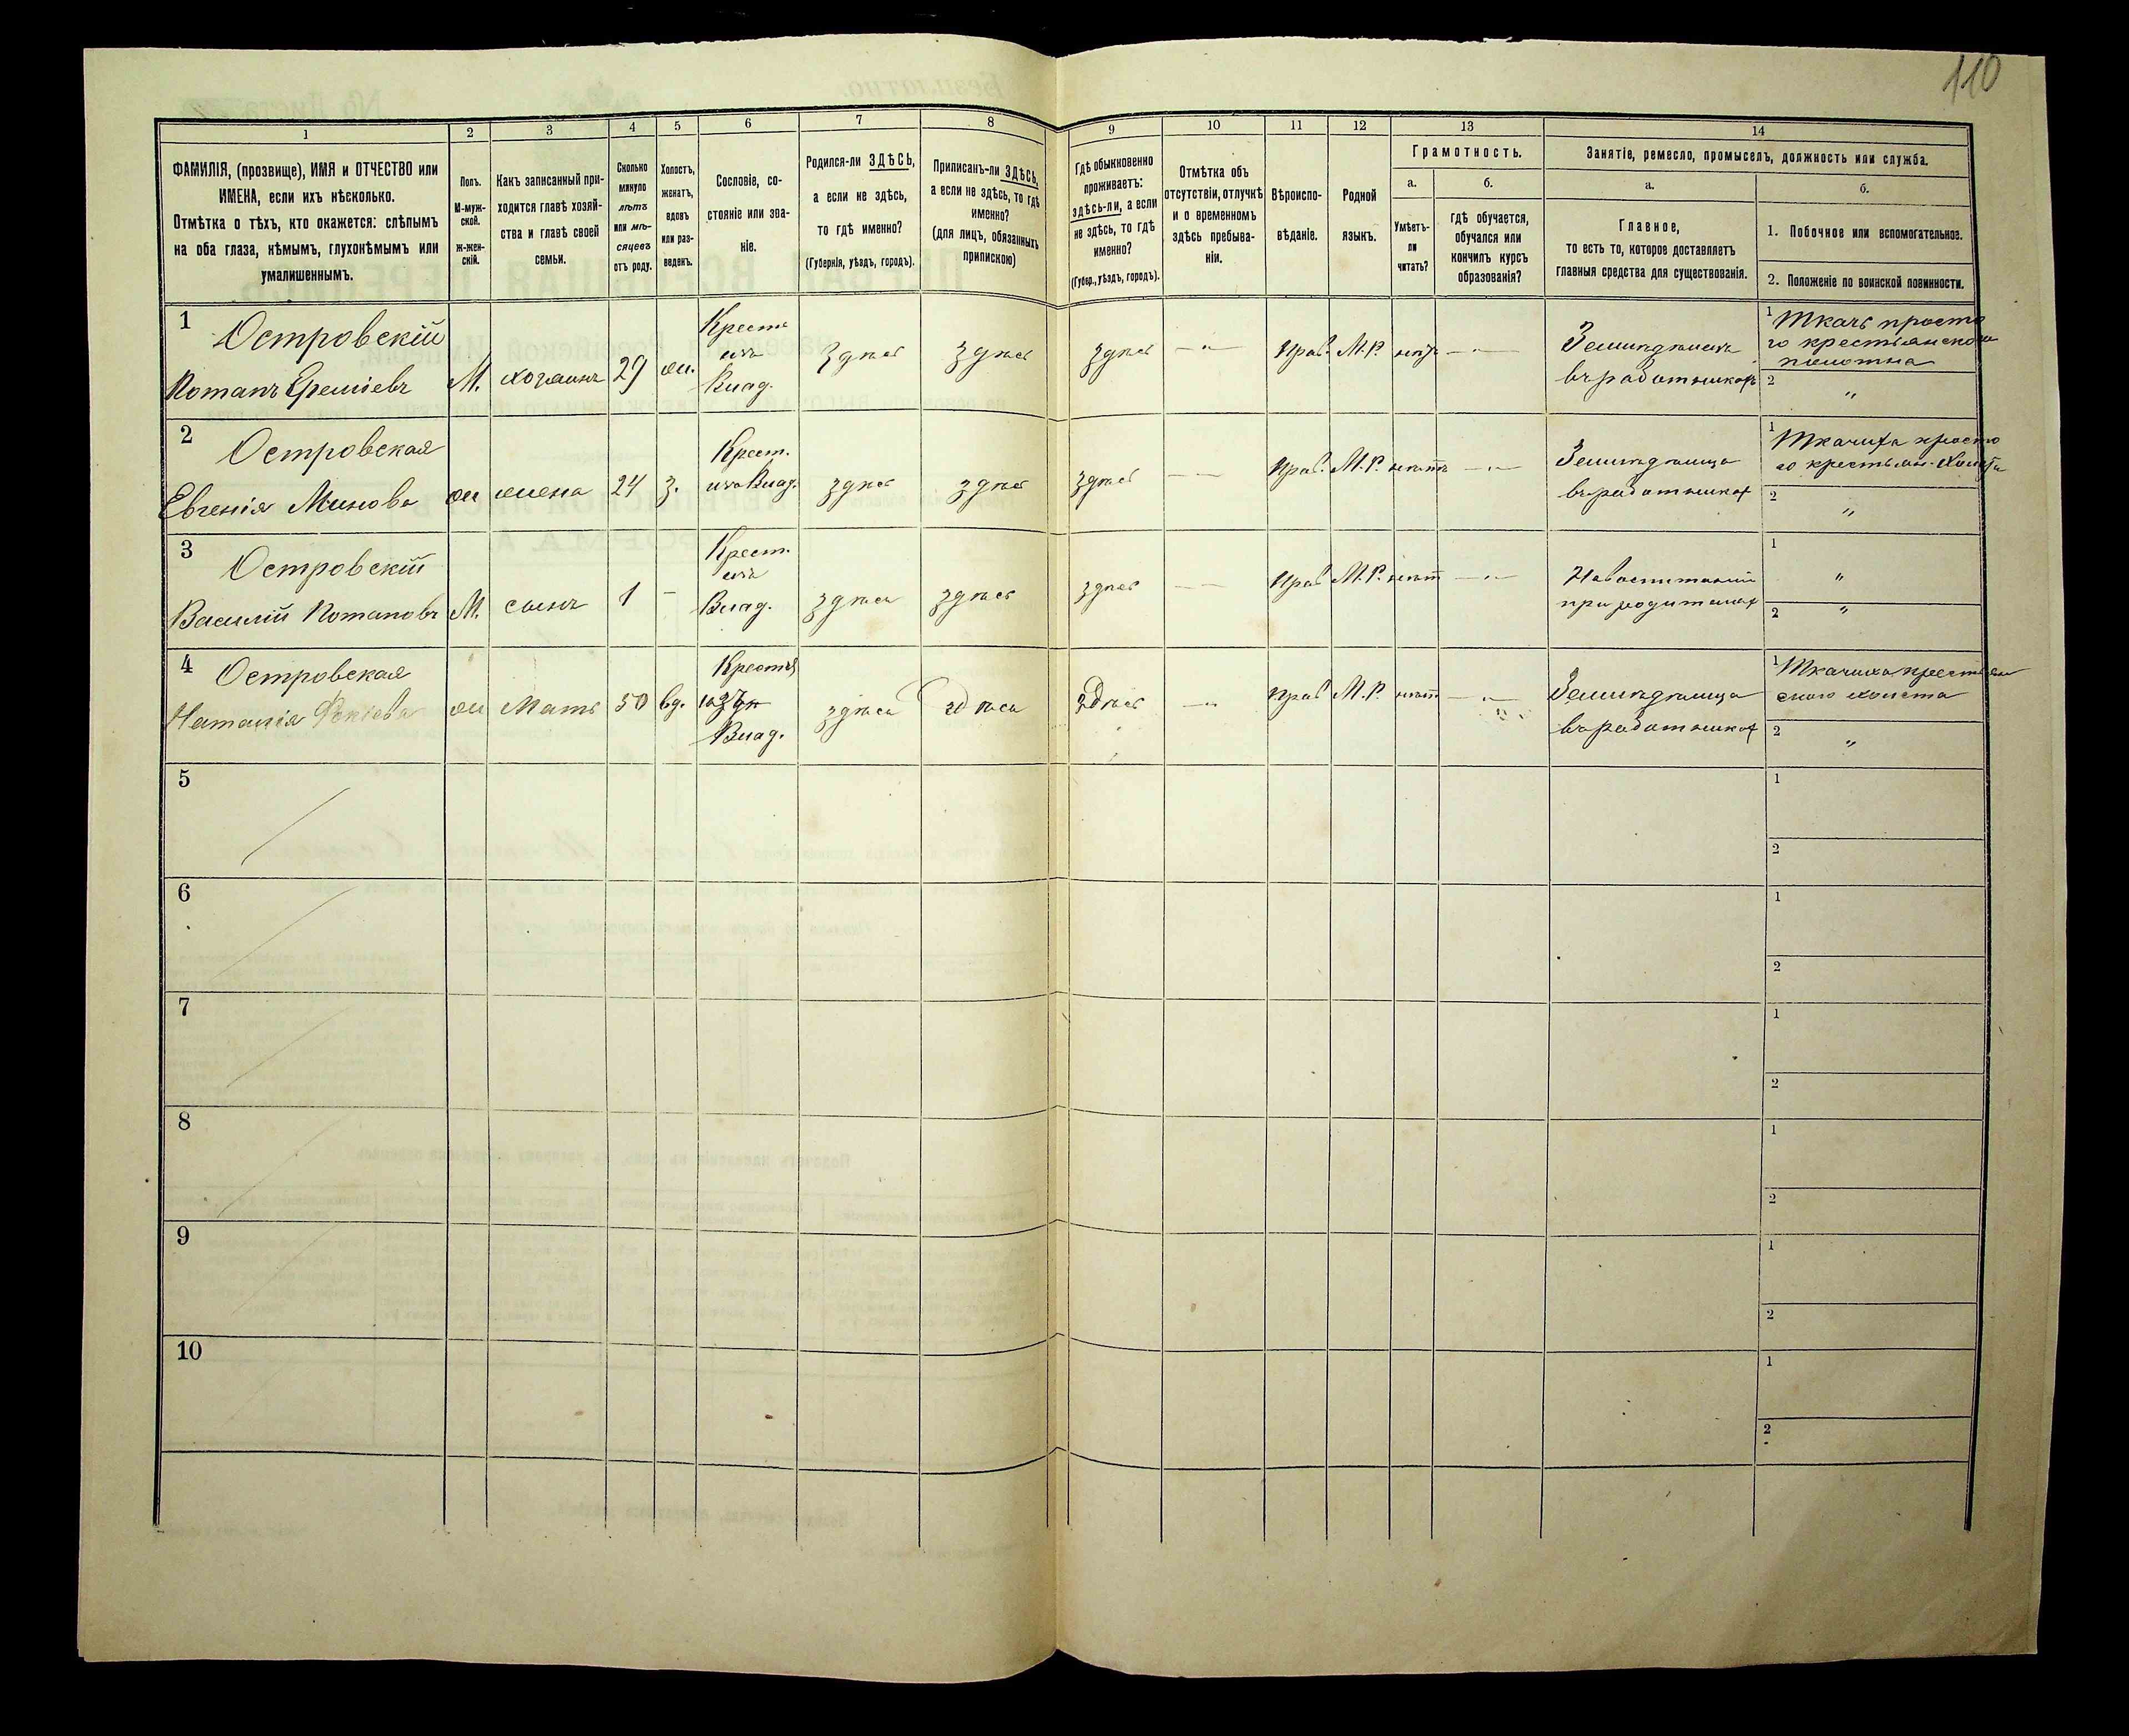 110
1
2
3
4
5
6
7
8
9
10
11
12
13
14
ФАМИЛІЯ, (прозвище), ИМЯ и ОТЧЕСТВО или
ИМЕНА, если ихъ нѣсколько.
Отмѣтка о тѣхъ, кто окажется: слѣпымъ
на оба глаза, нѣмымъ, глухонѣмымъ или
умалишеннымъ.
Полъ.
М-муж-
ской.
Ж-жен-
скій.
Какъ записанный при-
ходится главѣ хозяй-
ства и главѣ своей
семьи.
Сколько
минуло
лѣтъ
или мѣ-
сяцевъ
отъ роду.
Холостъ,
женатъ,
вдовъ
или раз-
веденъ.
Сословіе, со-
стояніе или зва-
ніе.
Родился-ли ЗДѢСЬ,
а если не здѣсь,
то гдѣ именно?
(Губернія, уѣздъ, городъ).
Приписанъ-ли ЗДѢСЬ,
а если не здѣсь, то гдѣ
именно?
(для лицъ, обязанныхъ
припискою)
Гдѣ обыкновенно
проживаетъ:
здѣсь-ли, а если
не здѣсь, то гдѣ
именно?
(Губер., уѣздъ, городъ).
Отмѣтка объ
отсутствіи, отлучкѣ
и о временномъ
здѣсь пребыва-
ніи.
Вѣроиспо-
вѣданіе.
Родной
языкъ.
Грамотность.
а.
Умѣетъ-
ли
читать?
б.
гдѣ обучается,
обучался или
кончилъ курсъ
образованія?
Занятіе, ремесло, промыселъ, должность или служба.
а.
Главное,
то есть то, которое доставляетъ
главныя средства для существованія.
б.
1. Побочное или вспомогательное.
2. Положеніе по воинской повинности.
1
Островскій
Романъ Ереміевъ
М.
хозаинъ
29
ж.
Крест
изъ
Влад.
здѣсь
здѣсь
здѣсь
— " —
Прав.
М.Р.
нѣтъ
— " —
Земледѣлецъ
въ работникахъ
1
Ткачъ просто
го крестьянско
полотна
2
"
2
Островская
Евгенія Минова
ж
жена
24
з.
Крест.
изъ Влад.
здѣсь
здѣсь
здѣсь
— —
Прав.
М.Р.
нѣтъ
— " —
Земледѣлица
въ работниках
1
Ткачиха просто
го крестьян. холста
2
"
3
Островскій
Василій Романовъ
М.
сынъ
1
–
Крест.
изъ
Влад.
здѣсь
здѣсь
здѣсь
— —
Прав
М.Р.
нѣт
— " —
при родителях
1
"
2
"
4
Островская
Наталія Фокіева
ж
Мать
50
вд.
Крестья
изъ
Влад.
здѣсь
здѣсь
здѣсь
— "
Прав
М.Р.
нѣт
— " —
Земледѣлица
въ работниках
1
Ткачиха крестьян
скаго холста
2
"
5
1
2
6
1
2
7
1
2
8
1
2
9
1
2
10
1
2